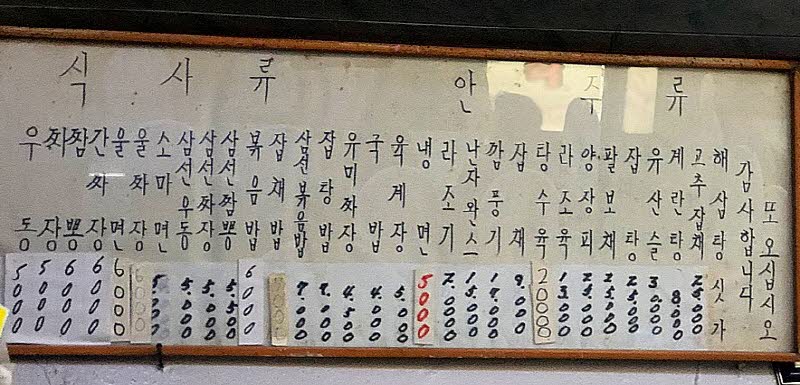 식사류
안주류
우동 5000
짜장 5000
짬뽕 6000
간짜장 6000
울면 6000
울짜장 6000
소마면
삼선우동
삼선짜장 5.500
삼선짬뽕 5.500
볶음밥 6000
잡채밥
삼선볶음밥 7.000
잡탕밥 7.000
유미짜장 4.500
국밥 4.000
육계장 5.000
냉면 5000
라조기
난자완스
깜풍기
잡채
탕수육 20000
라조육
양장피
팔보채
잡탕
유산슬
계란탕 8.000
고추잡채
해삼탕 싯가
감사합니다
또 오십시오